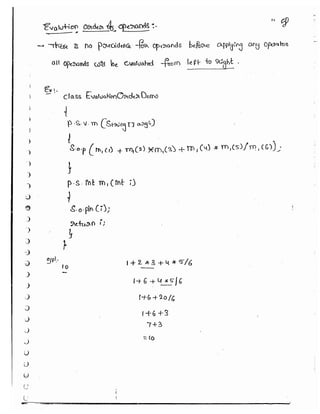 Evaluation order of operands :-
→ There is no precidence for operands before applying any operator
all operands will be evaluated from left to right.
Ex:-
class EvaluationOrderDemo
{
p.s.v.m (String[] args)
{
S.o.p (m1(1) + m1(2) * m1(3) + m1(4) * m1(5)/m1(6));
}
p.s. int m1(int i)
{
S.o.pln(i);
return i;
}
}
o/p:-
10
1+2*3+4*5/6
1+6+4*5/6
1+6+20/6
1+6+3
7+3
=10